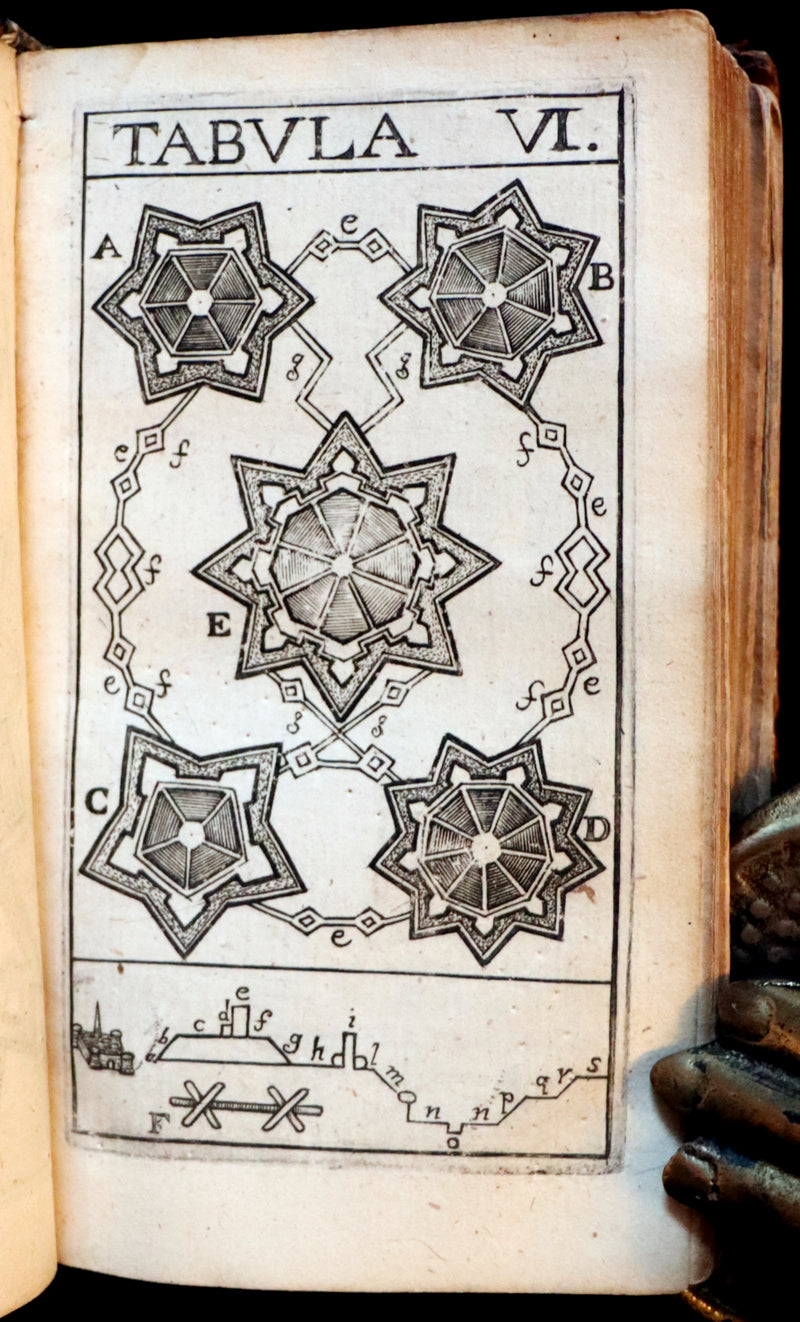 TABVLA VI.
A e B
g g
e f f
e e
f f
E
e f f e
g g
C D
e
e
b c d f i
a g h l m n o n p q r s
F